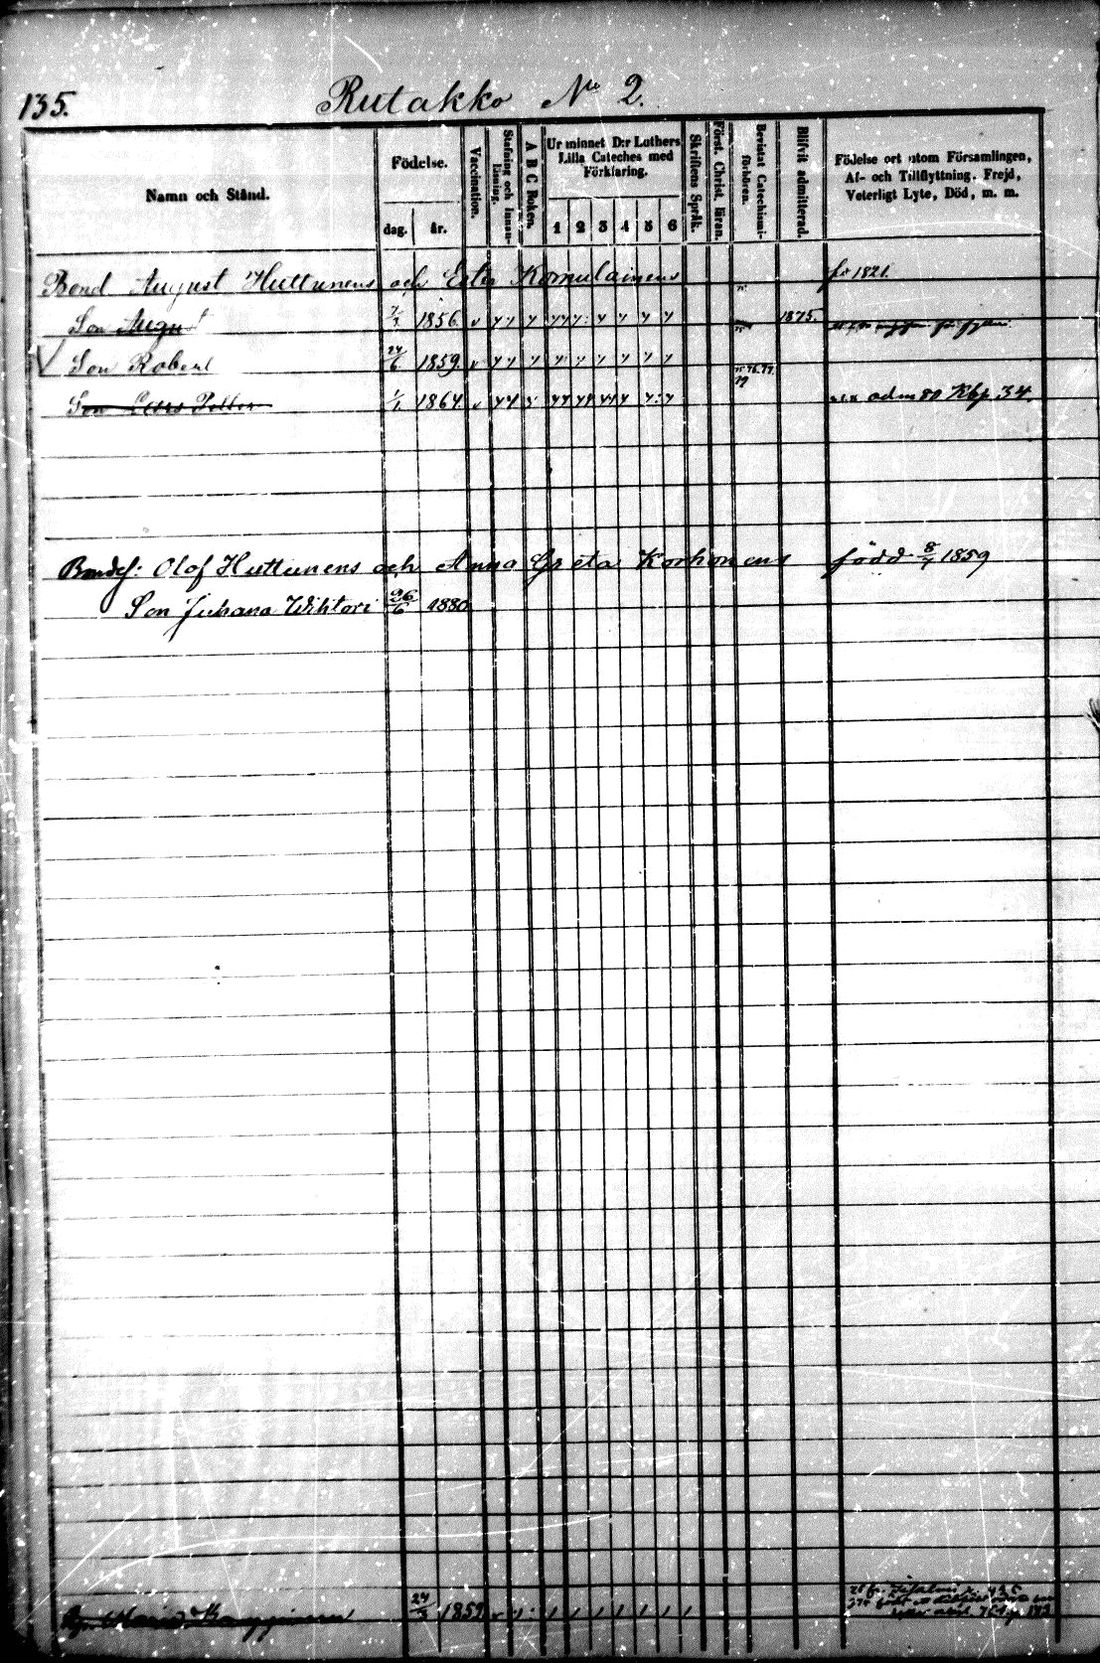 135.
Rutakko No 2.
Namn och Stånd.
Födelse.
dag.
år.
Vaccination.
Stafning och Innanläsning.
A B C Boken.
Ur minnet D:r Luthers Lilla Cateches med Förklaring.
1 2 3 4 5 6
Skriftens Språk.
Först. Christ. läran.
Bevistat Catechismi-förhören.
Blifvit admitterad.
Födelse ort utom Församlingen, Af- och Tillflyttning, Frejd, Veterligt Lyte, Död, m. m.
Bond August Huttunens och Ester Komulainens 1821.
Son August 1856 1875.
Son Robert 24/6 1859.
Son Lars Petter 1/1 1864 adm 80 Kbp. 34.
Bondes: Olof Huttunens och Anna Greta Korhonens född 8/7 1859
Son Juhana Wihtori 26/6 1880
Maria 24/3 1859